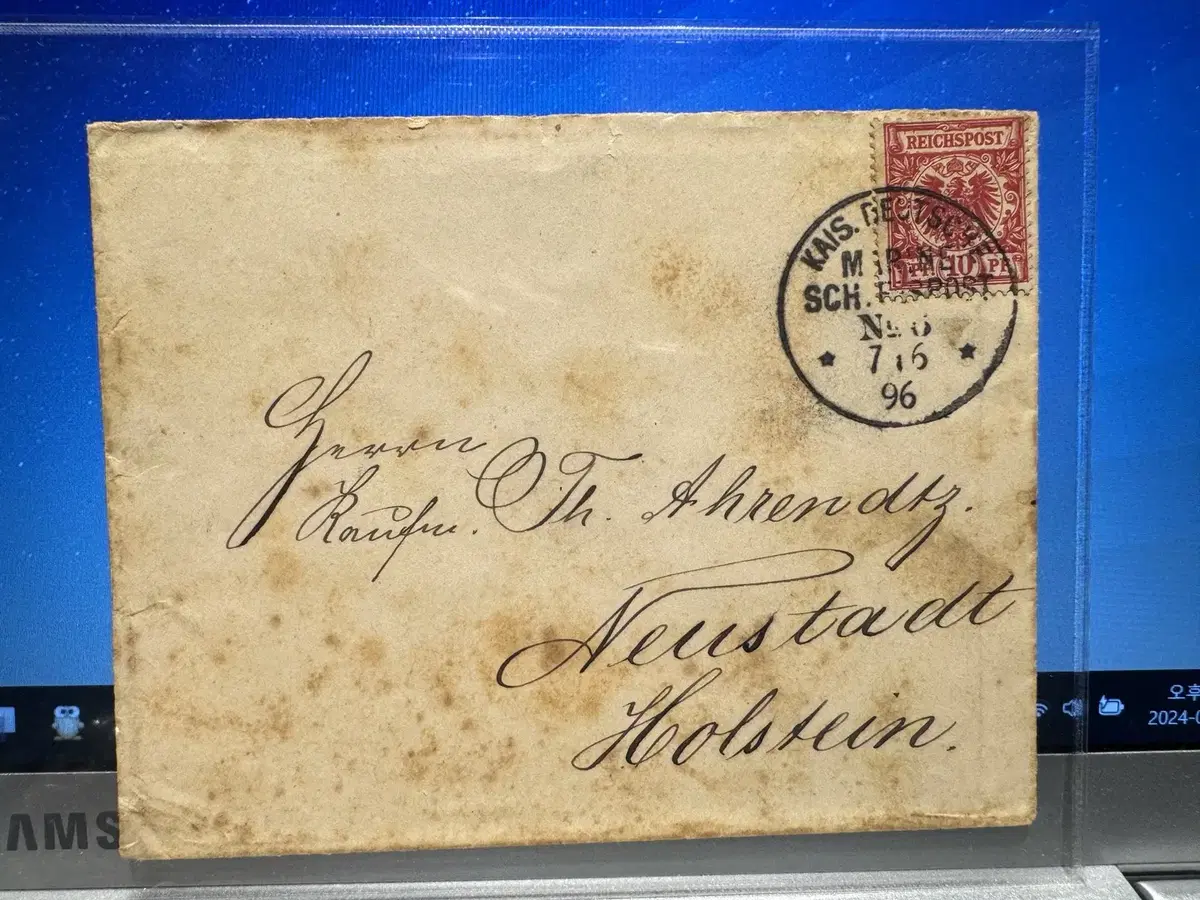 REICHSPOST
10 PF
KAIS. DEUTSCHE
MARINE
SCHIFFSPOST
No 6
7 6
96
Herrn
Kaufm. Th. Ahrendtz.
Neustadt
Holstein.
오후
2024-0
AMS